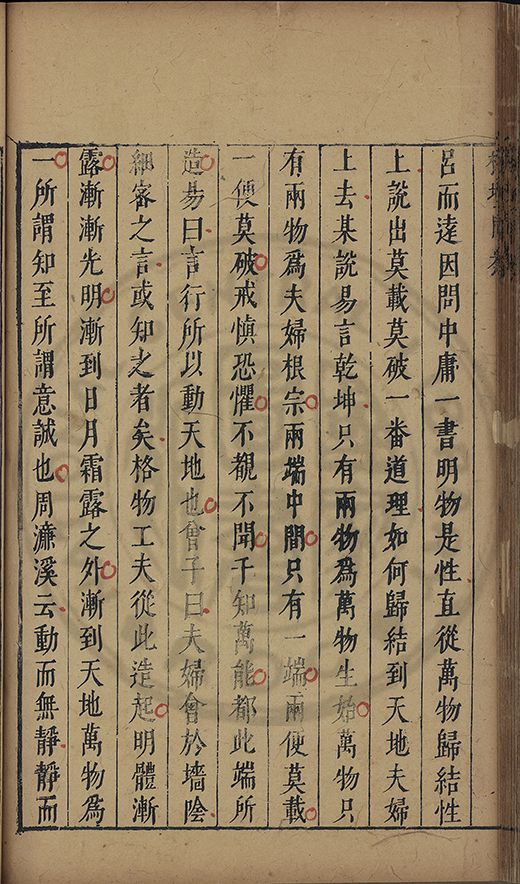 呂而達因問中庸一書明物是性直從萬物歸結性
上說出莫載莫破一番道理如何歸結到天地夫婦
上去某說易言乾坤只有兩物爲萬物生始萬物只
有兩物爲夫婦根宗兩端中間只有一端兩便莫載
一便莫破戒慎恐懼不覩不聞千知萬能都此端所
造易曰言行所以動天地也會子曰夫婦會於墻陰
細密之言或知之者矣格物工夫從此造起明體漸
露漸漸光明漸到日月霜露之外漸到天地萬物爲
一所謂知至所謂意誠也周濂溪云動而無靜靜而